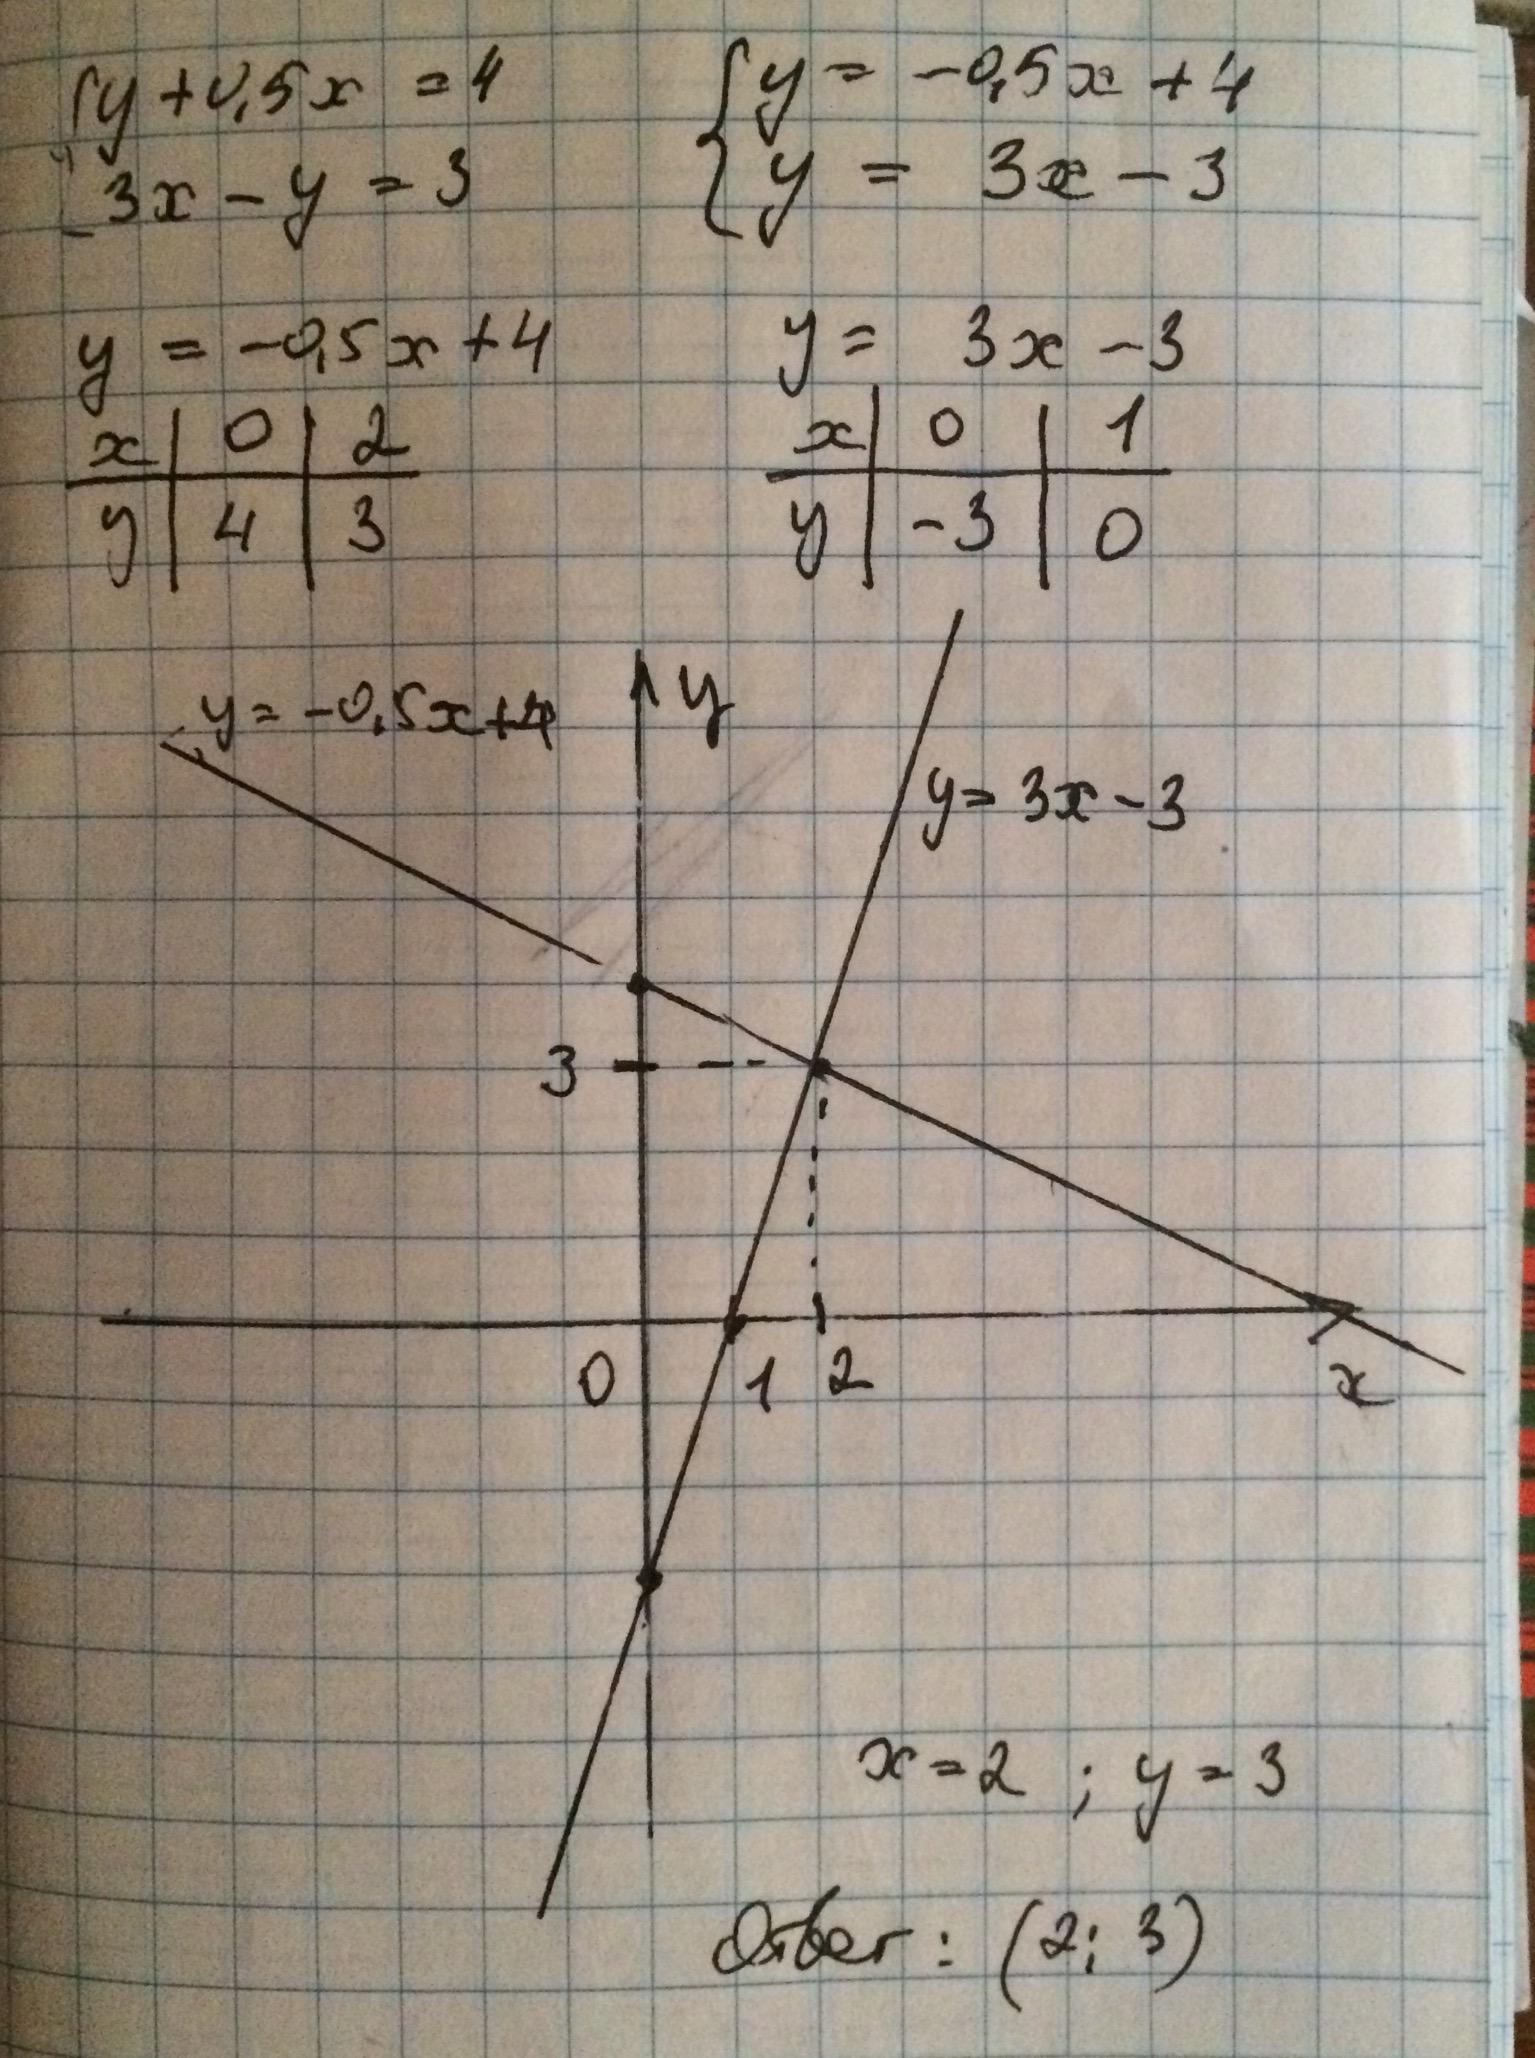 { y + 0,5x = 4
3x - y = 3
{ y = -0,5x + 4
y = 3x - 3
y = -0,5x + 4
x | 0 | 2
y | 4 | 3
y = 3x - 3
x | 0 | 1
y | -3 | 0
y
y = -0,5x + 4
y = 3x - 3
3
0 1 2 x
x = 2 ; y = 3
Ответ : (2; 3)